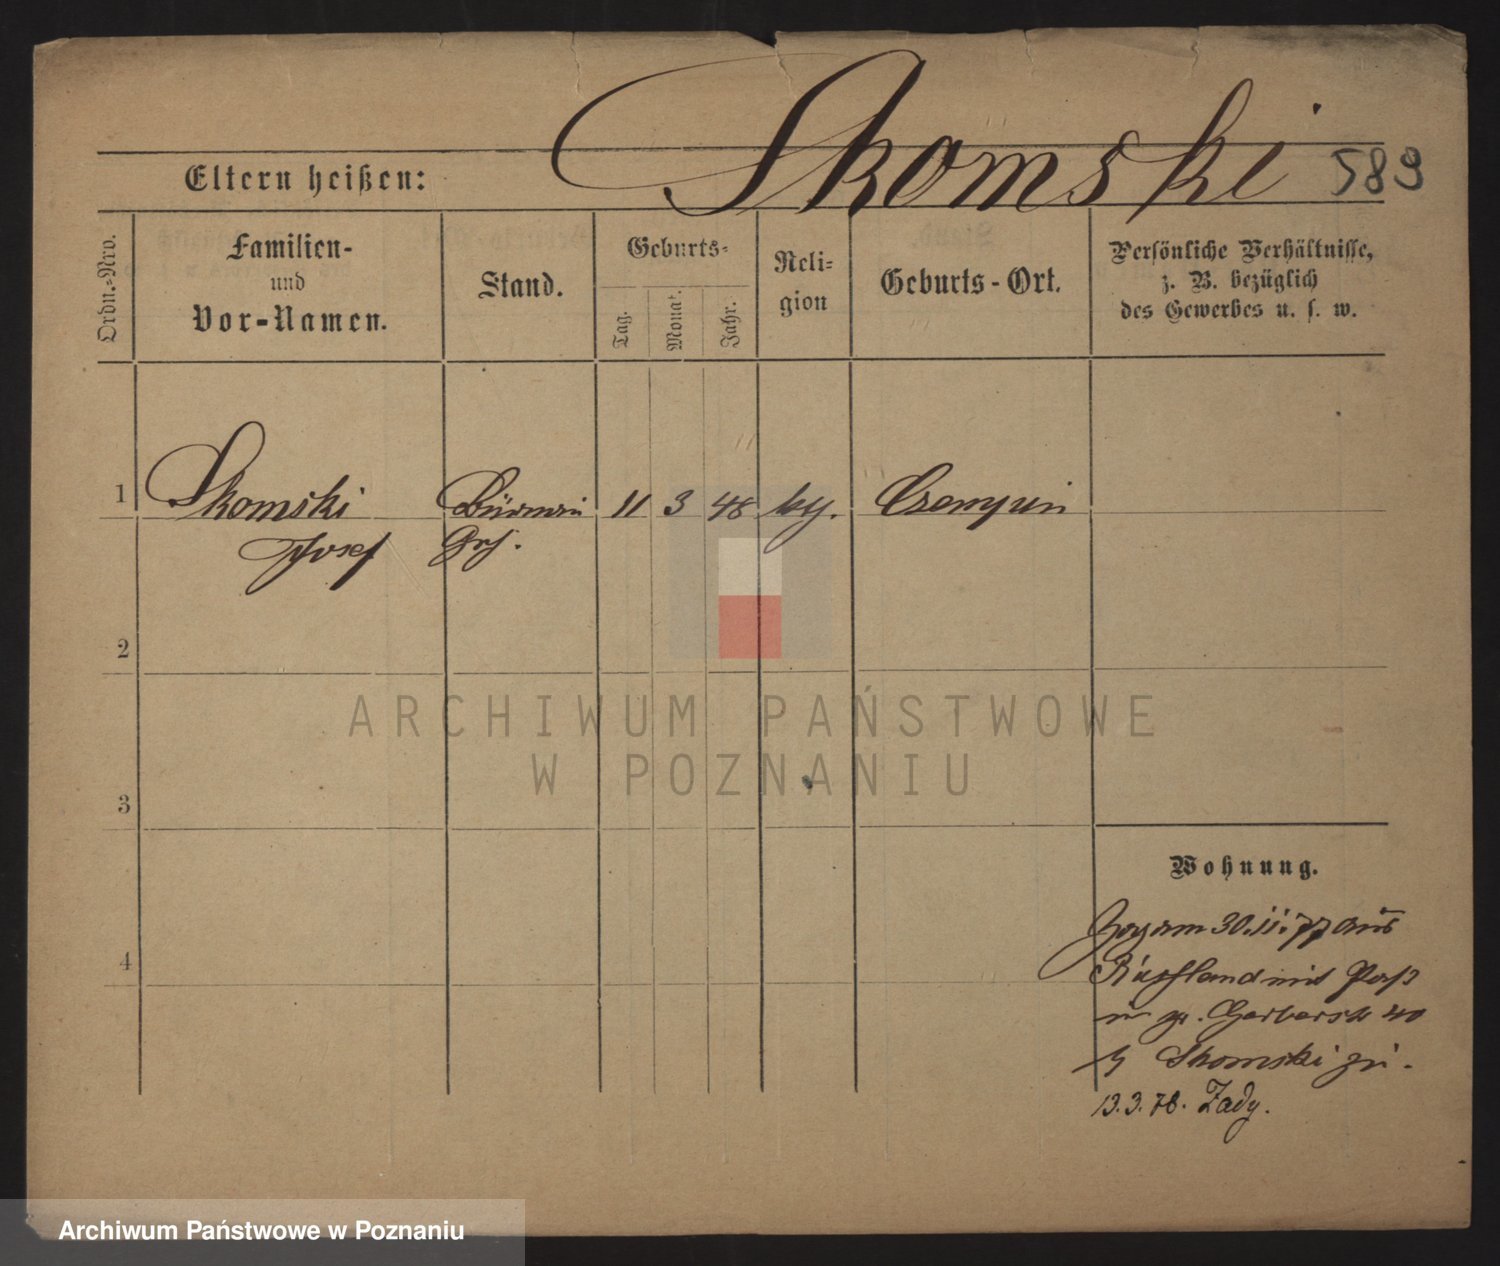 Skomski 589
Eltern heißen:
Ordn.-Nro.
Familien-
und
Vor-Namen.
Stand.
Geburts-
Tag.
Monat.
Jahr.
Reli-
gion
Geburts-Ort.
Persönliche Verhältnisse,
z. B. bezüglich
des Gewerbes u. s. w.
1 Skomski 11 3 48 Czempin
Josef
2
ARCHIWUM PAŃSTWOWE
W POZNANIU
3
Wohnung.
4
Zog am 30.11.77 aus
Rußland mit Paß
gr. Gerberstr 40
Skomski zu.
13.3.78. Zady.
Archiwum Państwowe w Poznaniu